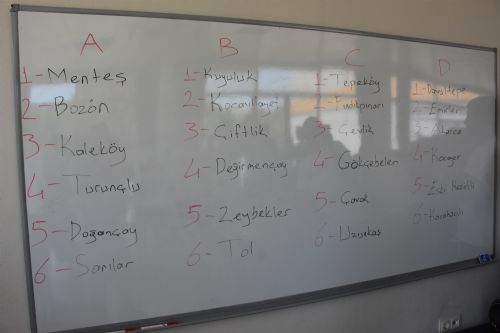 A
1-Menteş
2-Bozön
3-Kaleköy
4-Turunçlu
5-Doğançay
6-Sarılar
B
1-Kuyuluk
2-Kocavilayet
3-Çiftlik
4-Değirmençay
5-Zeybekler
6-Tol
C
1-Tepeköy
2-Fındıkpınarı
3-Çevlik
4-Gökçebelen
5-Çavak
6-Uzunkaş
D
1-Davultepe
2-Emirler
3-Akarca
4-Kocayer
5-Eski Mezitli
6-Karahacılı